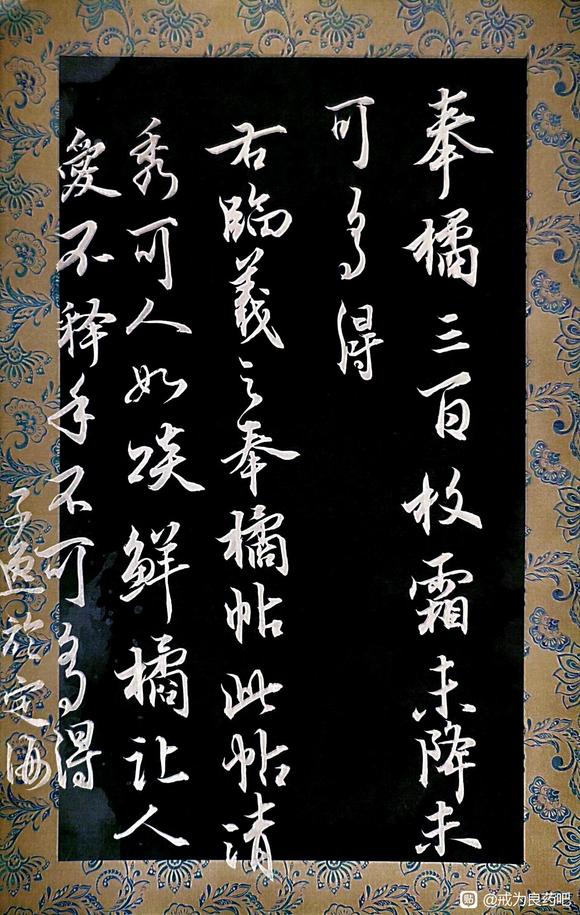 奉橘三百枚霜未降未
可多得
右臨羲之奉橘帖此帖清
秀可人如啖鲜橘让人
愛不释手不可多得
於定海
贴 @戒为良药吧